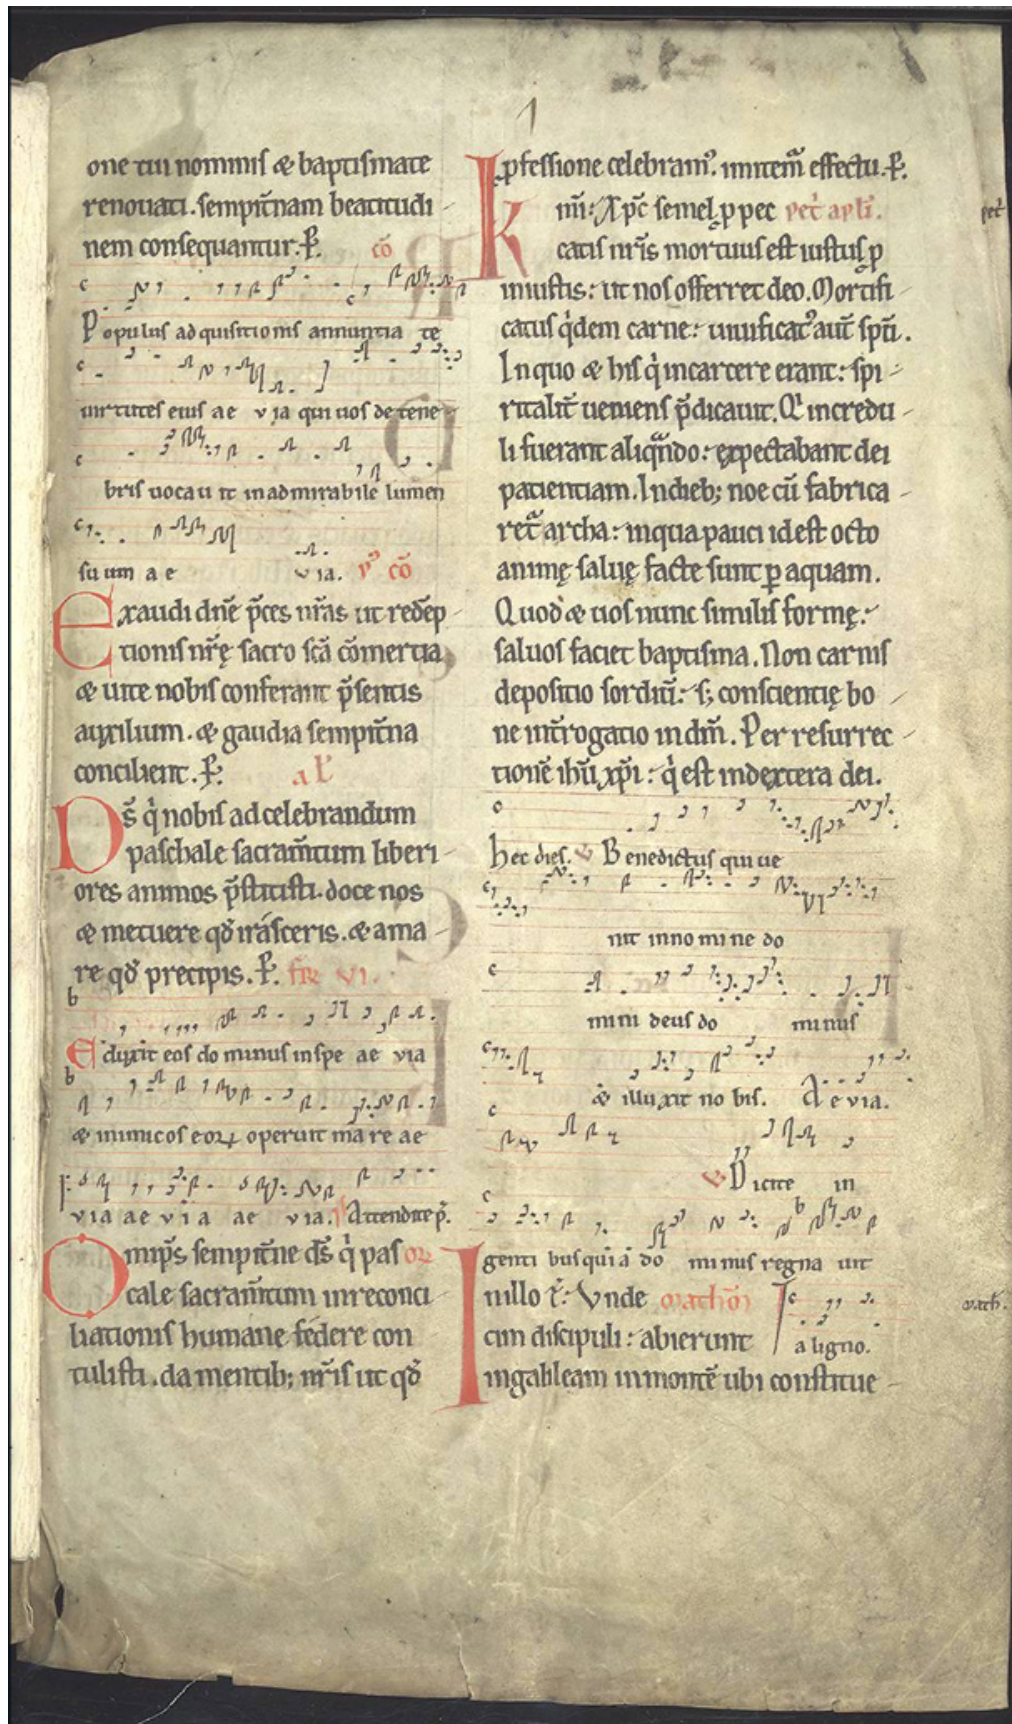 one tui nominis & baptismate
renouati. sempit̄nam beatitudi
nem consequantur. P̄. cō
Populus adquisitionis annuntia te
uirtutes eius ae via qui uos de tene
bris uocauit in admirabile lumen
suum a e via. pꝰ cō
Exaudi dn̄e p̄ces nr̄as ut redēp
tionis nr̄ę sacro sc̄a cōmertia,
& uite nobis conferant p̄sentis
auxilium. & gaudia sempit̄na
concilient. P̄. a l̄
Ds̄ q̇ nobis ad celebrandum
paschale sacram̄tum liberi
ores animos p̄stitisti. doce nos
& metuere qd̄ irásceris. & ama
re qd̄ precipis. P̄. fir̄ vi.
Eduxit eos dominus in spe ae via
& inimicos eoꝝ operuit mare ae
via ae via ae via. Attendite p̄.
Omīps sempit̄ne ds̄ q̇ pas oꝝ
cale sacram̄tum in reconci
liationis humane fédere con
tulisti. da mentib; nr̄is ut qd̄
ꝓfessione celebramꝰ. imitem̄ effectu. P̄.
K mī: Xp̄c semel ꝓ pec pet̄ apli.
catis nr̄is mortuus est iustus ꝓ
iniustis: ut nos offerret deo. Mortifi
catus q̇dem carne: uiuificatꝰ aut̄ spū.
In quo & his q̇ in carcere erant: spi
ritalit̄ ueniens p̄dicauit. Qi incredu
li fuerant aliqn̄do: expectabant dei
patientiam. In dieb; noe cū fabrica
ret̄ archa: in qua pauci id est octo
animę saluę facte sunt ꝑ aquam.
Quod & uos nunc similis formę:
saluos faciet baptisma. Non carnis
depositio sordiū: s; conscientię bo
ne int̄rogatio in dm̄. Per resurrec
tionē ihū xp̄i: q̇ est in dextera dei.
hec dies. V Benedictus qui ue
nit in nomine do
mini deus do minus
& illuxit nobis. Ae via.
V Dicite in
gentibus quia do minus regna uit
In illo t̄: Vnde matheō
cim discipuli: abierunt a ligno.
in galileam in montē ubi constitue
pet̄
math.